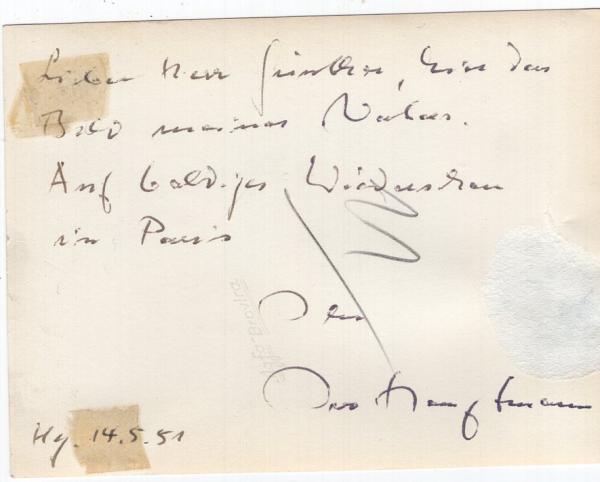 Lieber Herr Günther, hier das
Bild meines Vaters.
Auf baldiges Wiedersehen
in Paris
Ihr
Ivo Hauptmann
Hg. 14.5.51